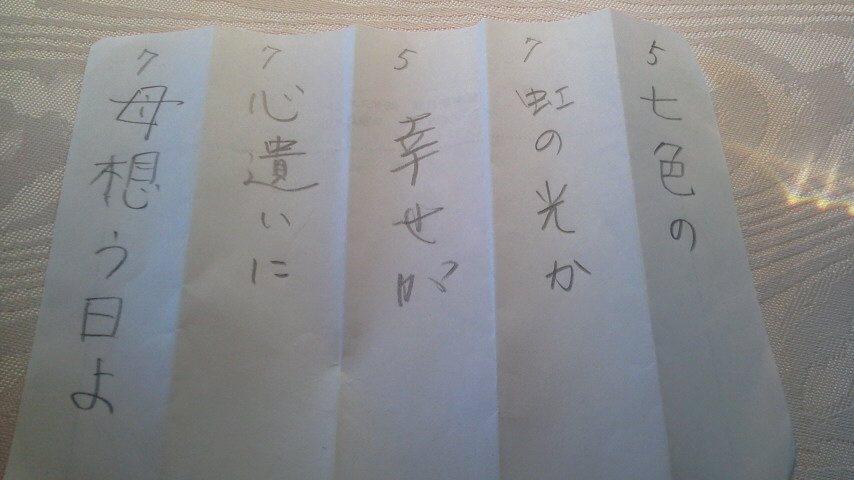 5 七色の
7 虹の光か
5 幸せが
7 心遣いに
7 母想う日よ